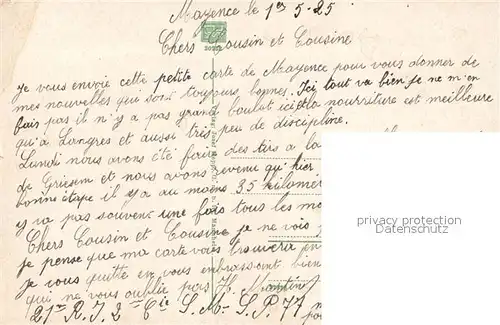 Mayence le 1er 5-25
Chers Cousin et Cousine
Je vous envoie cette petite carte de Mayence pour vous donner de
mes nouvelles qui sont toujours bonnes. Ici tout va bien je ne m'en
fais pas il n'y a pas grand boulot ici et la nourriture est meilleure
qu'à Langres et aussi très peu de discipline.
Lundi nous avons été faire des tirs a la
de Griesem et nous avons revenu qu'hier
bonne étape il y a au moins 35 kilomèr
y va pas souvent une fois tous les mo
Chers Cousin et Cousine je ne vois
je pense que ma carte vous trouvera en
Je vous quitte en vous embrassant bien
qui ne vous oublie pas H. Martin
21me R.I. 2me Cie S.M. S.P. 77
privacy protection
www.akpool.co.uk